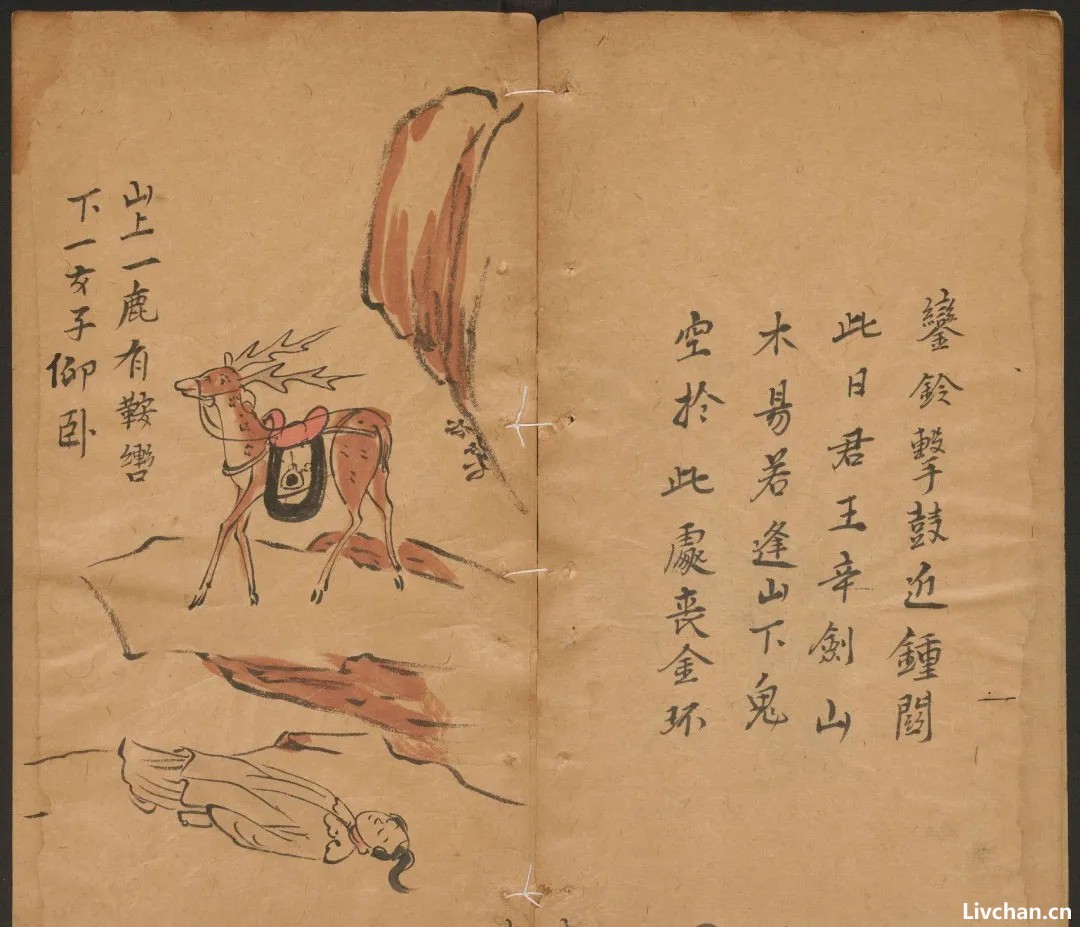 鑾鈴擊鼓近鍾関
此日君王辛劍山
木易若逢山下鬼
空扵此處喪金环
山上一鹿有鞍轡
下一女子仰卧
Livchan.cn